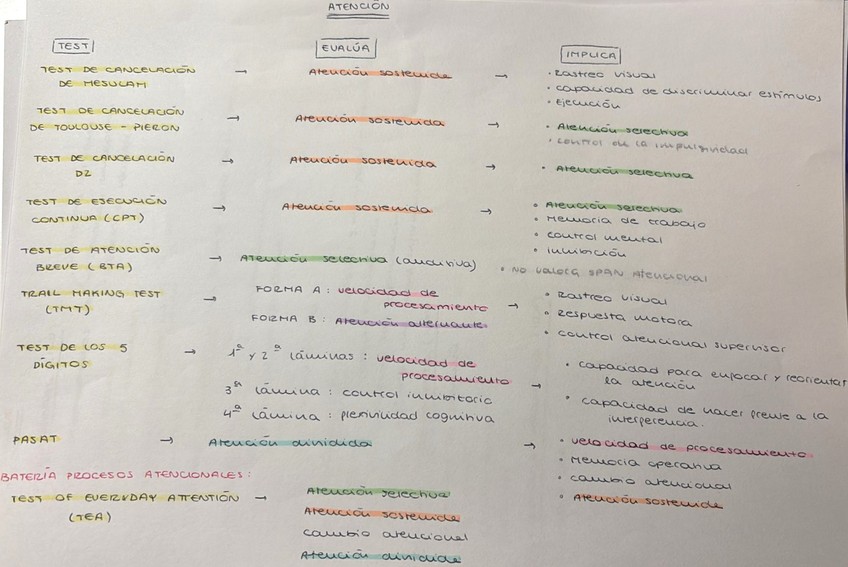 ATENCIÓN
TEST EVALÚA IMPLICA
TEST DE CANCELACIÓN
DE MESULAM → Atención sostenida → • Rastreo visual
• capacidad de discriminar estímulos
• Ejecución
TEST DE CANCELACIÓN
DE TOULOUSE - PIERON → Atención sostenida → • Atención selectiva
• control de la impulsividad
TEST DE CANCELACIÓN
D2 → Atención sostenida → • Atención selectiva
TEST DE EJECUCIÓN
CONTINUA (CPT) → Atención sostenida → • Atención selectiva
• Memoria de trabajo
• control mental
• inhibición
TEST DE ATENCIÓN
BREVE (BTA) → Atención selectiva (auditiva)
• NO VALORA SPAN Atencional
TRAIL MAKING TEST
(TMT) → FORMA A : velocidad de
procesamiento
FORMA B : Atención alternante → • Rastreo visual
• Respuesta motora
• control atencional supervisor
TEST DE LOS 5
DÍGITOS → 1ª y 2ª láminas : velocidad de
procesamiento
3ª lámina : control inhibitorio
4ª lámina : flexibilidad cognitiva → • capacidad para enfocar y reorientar
la atención
• capacidad de hacer frente a la
interferencia.
PASAT → Atención dividida → • velocidad de procesamiento
• Memoria operativa
• cambio atencional
• Atención sostenida
BATERÍA PROCESOS ATENCIONALES :
TEST OF EVERYDAY ATTENTIÓN
(TEA) → Atención selectiva
Atención sostenida
cambio atencional
Atención dividida